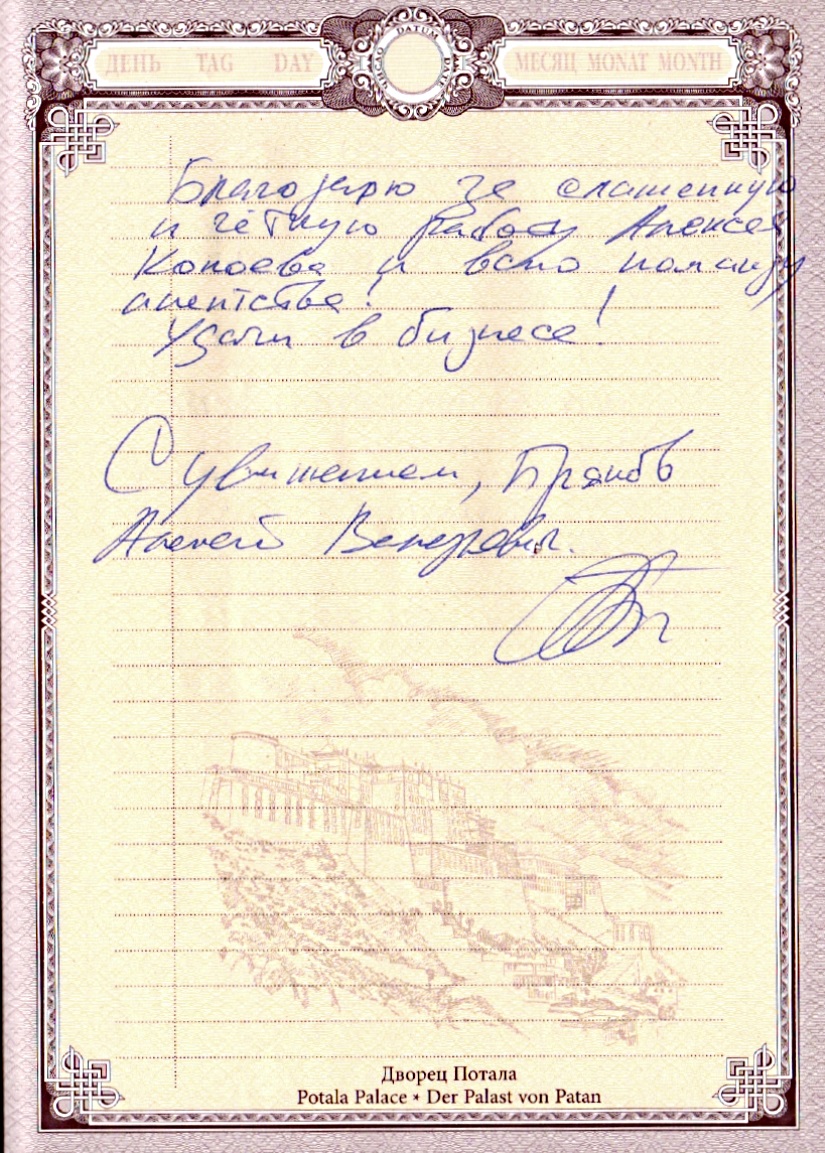 ДЕНЬ TAG DAY
ЧИСЛО DATUM DATE
МЕСЯЦ MONAT MONTH
Благодарю за слаженную
и чёткую работу Алексея
Копоева и всю команду
агентства!
Удачи в бизнесе!
С уважением,
Алексей Валерьевич.
Дворец Потала
Potala Palace * Der Palast von Patan